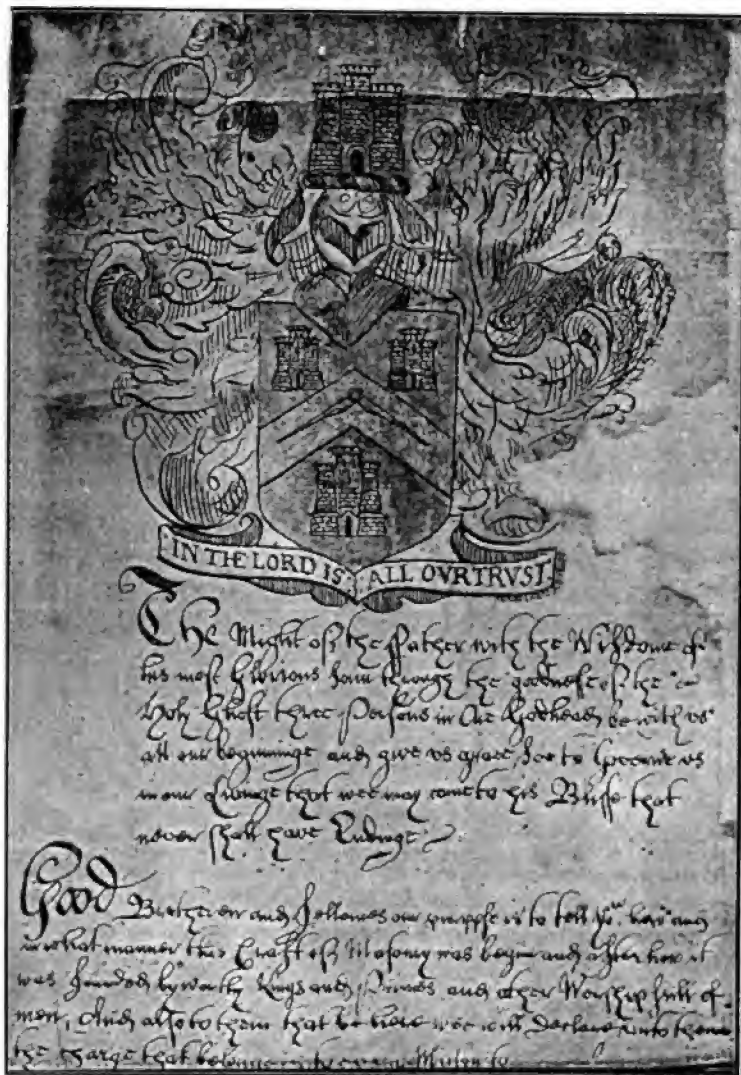 IN THE LORD IS ALL OVR TRVST
The Might of the ffather with the Wisdome of
his most Glorious through the goodnesse of the
Holy Ghost three Persons in One Godhead be with vs
att our beginninge and give vs grace soe to Governe vs
in our that wee may come to his Blisse that
never shall have Endinge
Good Bretheren and ffellowes our purpose is to tell how and
in what manner this Craft of Masonry was begun and after how it
was founded by worthy Kings and Princes and other Worshipfull
men, And also to them that be here wee will declare unto them
the Charge that